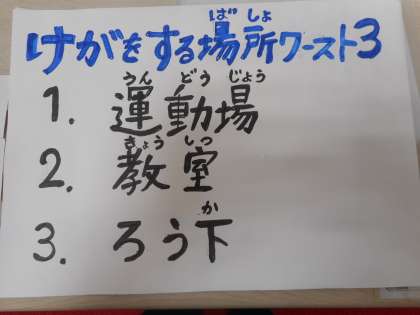 けがをする場所ワースト3
ばしょ
1. 運動場
うんどうじょう
2. 教室
きょうしつ
3. ろう下
か